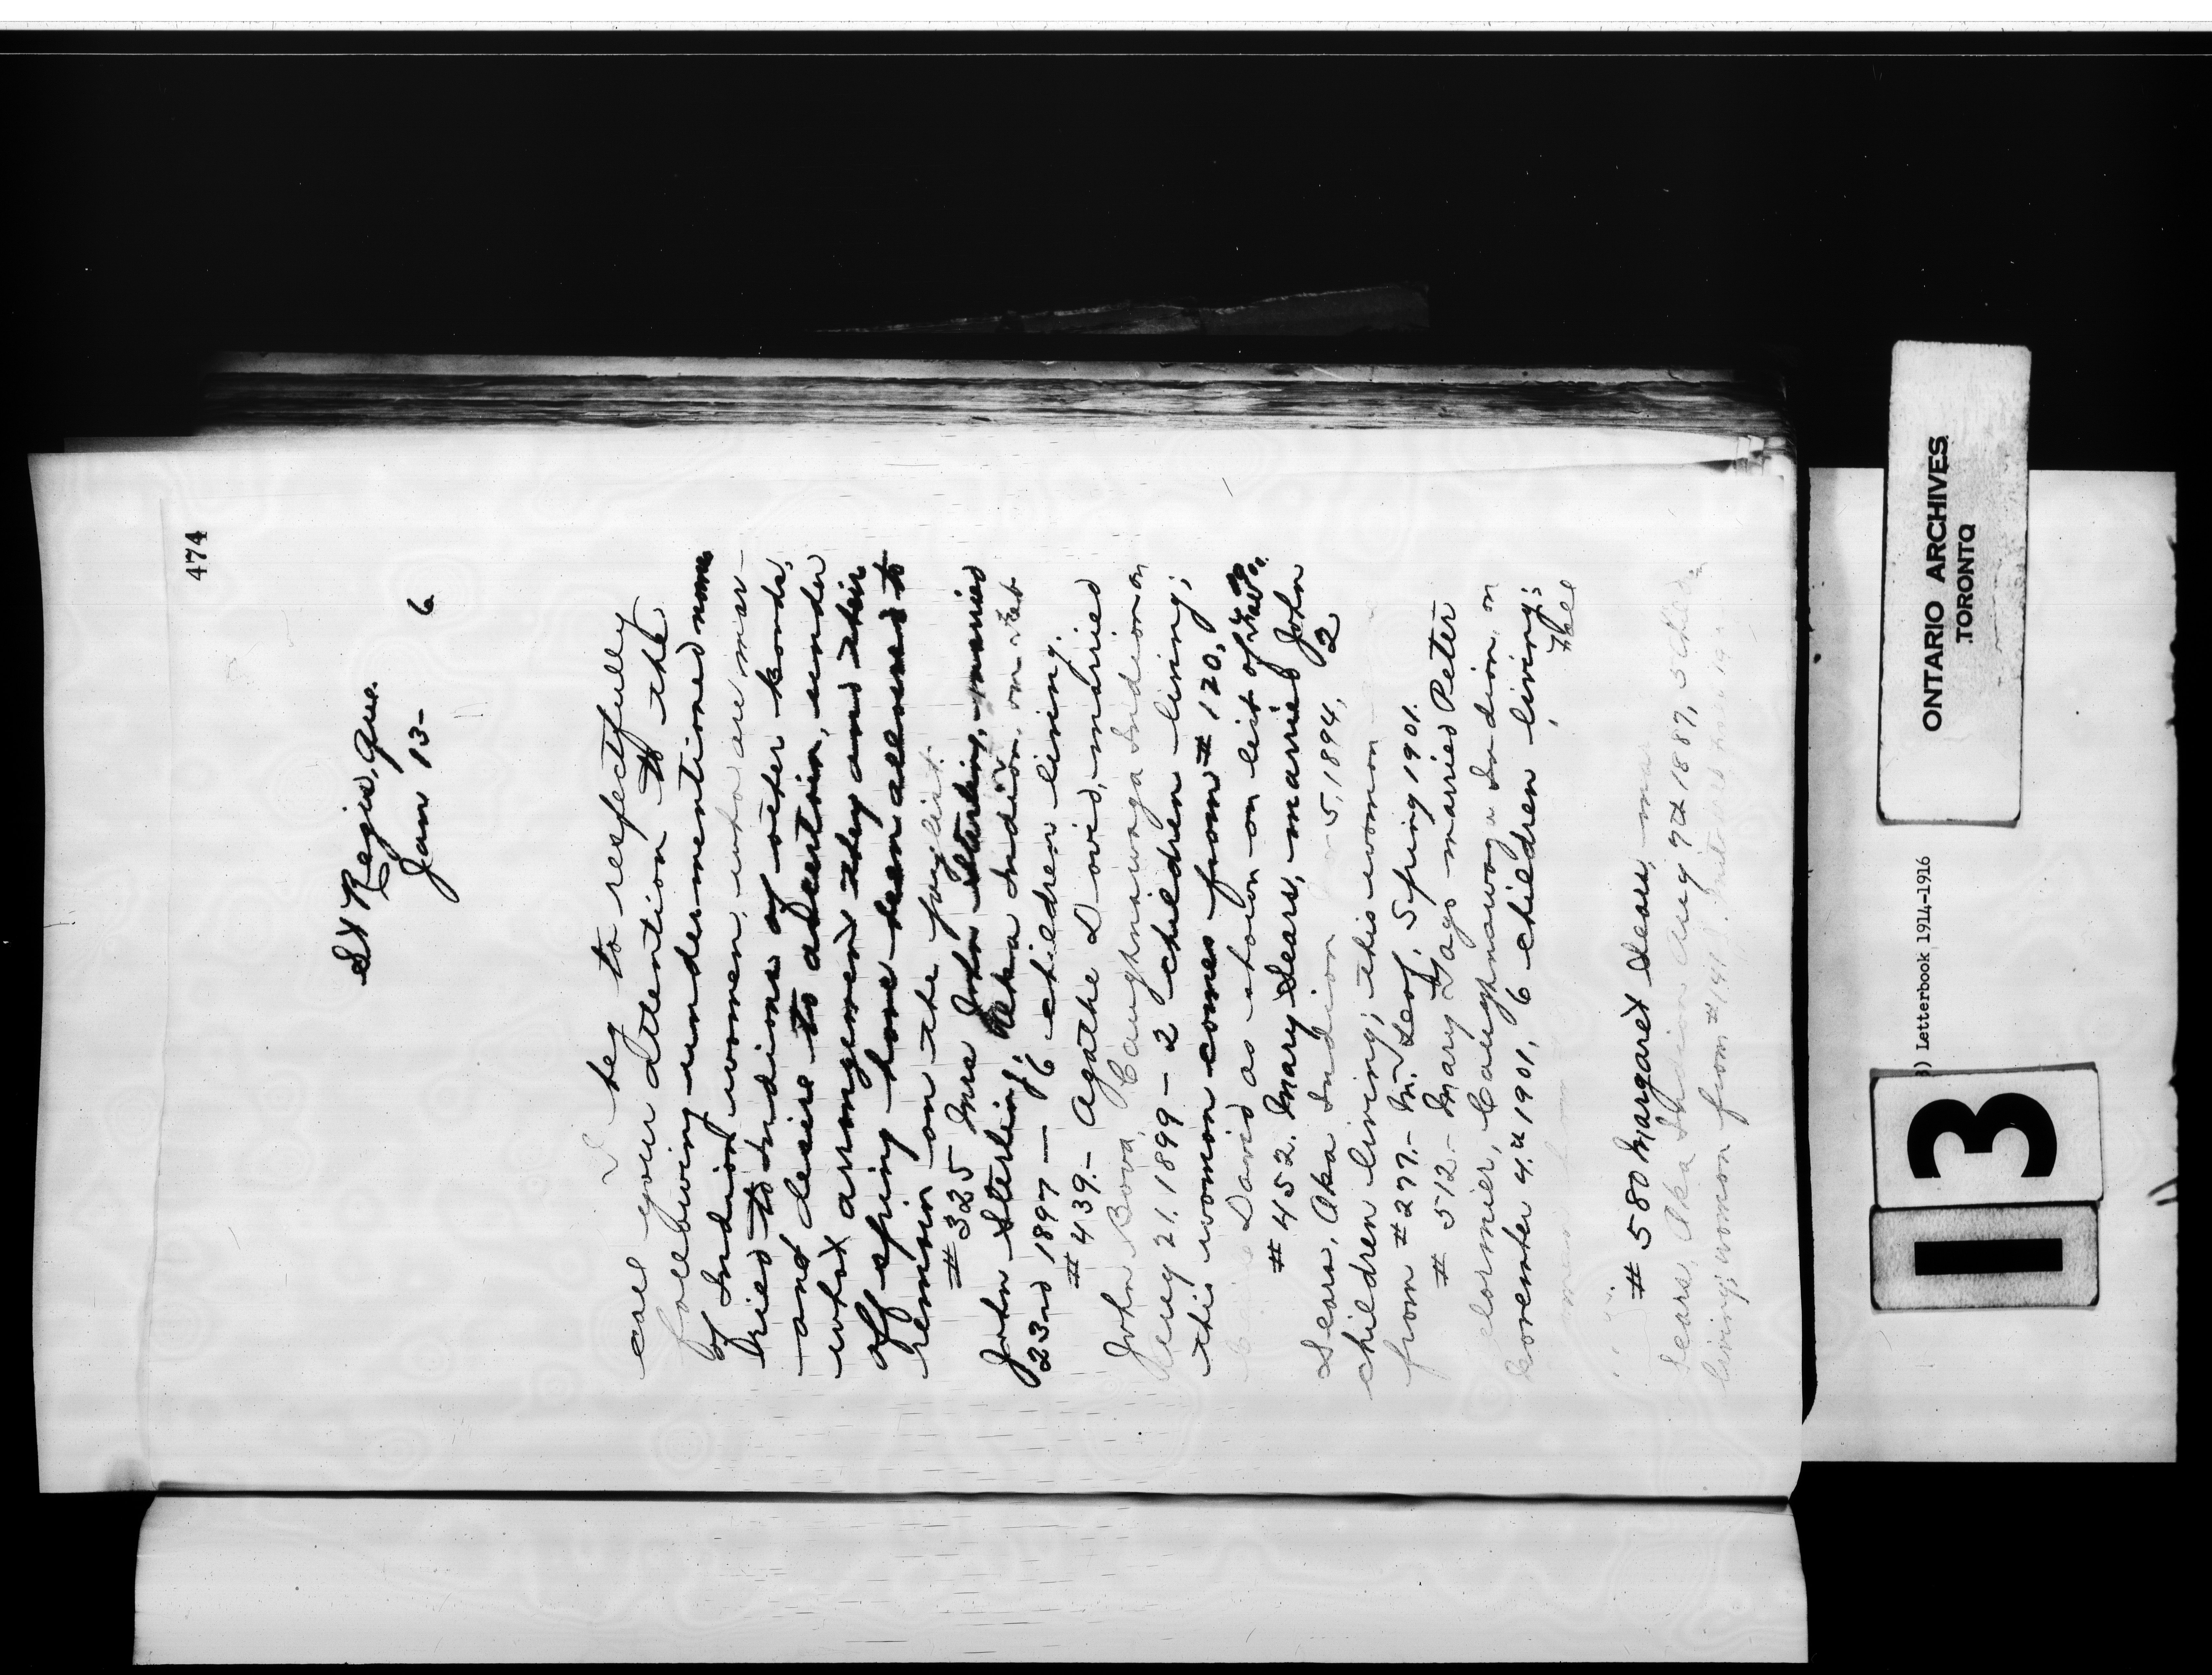 474
St Regis, Que.
Jan 13- 6
I beg to respectfully
call your attention to the
following undermentioned names
of Indian women, who are mar-
ried to Indians of other bands,
and desire to ascertain, under
what arrangement they and their
offspring have been allowed to
remain on the paylist.
# 325 Mrs John Sterling, married
John Sterling, Oka Indian, on Feb
23rd 1897 — 6 children living.
# 439.- Agathe David, married
John Bova, Caughnawaga Indian on
21. 1899 - 2 children living;
this woman comes from # 120,
David as shown on list of
# 452. Mary Sears, married John
Sears, Oka Indian 5, 1894, 2
children living; this woman
from # 277.- M. Leaf, Spring 1901.
# 512 - Mary Jago married Peter
Caughnawaga Indian on
November 4th 1901, 6 children living;
# 580 Margaret Sears,
Sears, Oka Indian Aug 9th 1887, 5
living; woman from # 141
ONTARIO ARCHIVES
TORONTO
) Letterbook 1914-1916
13